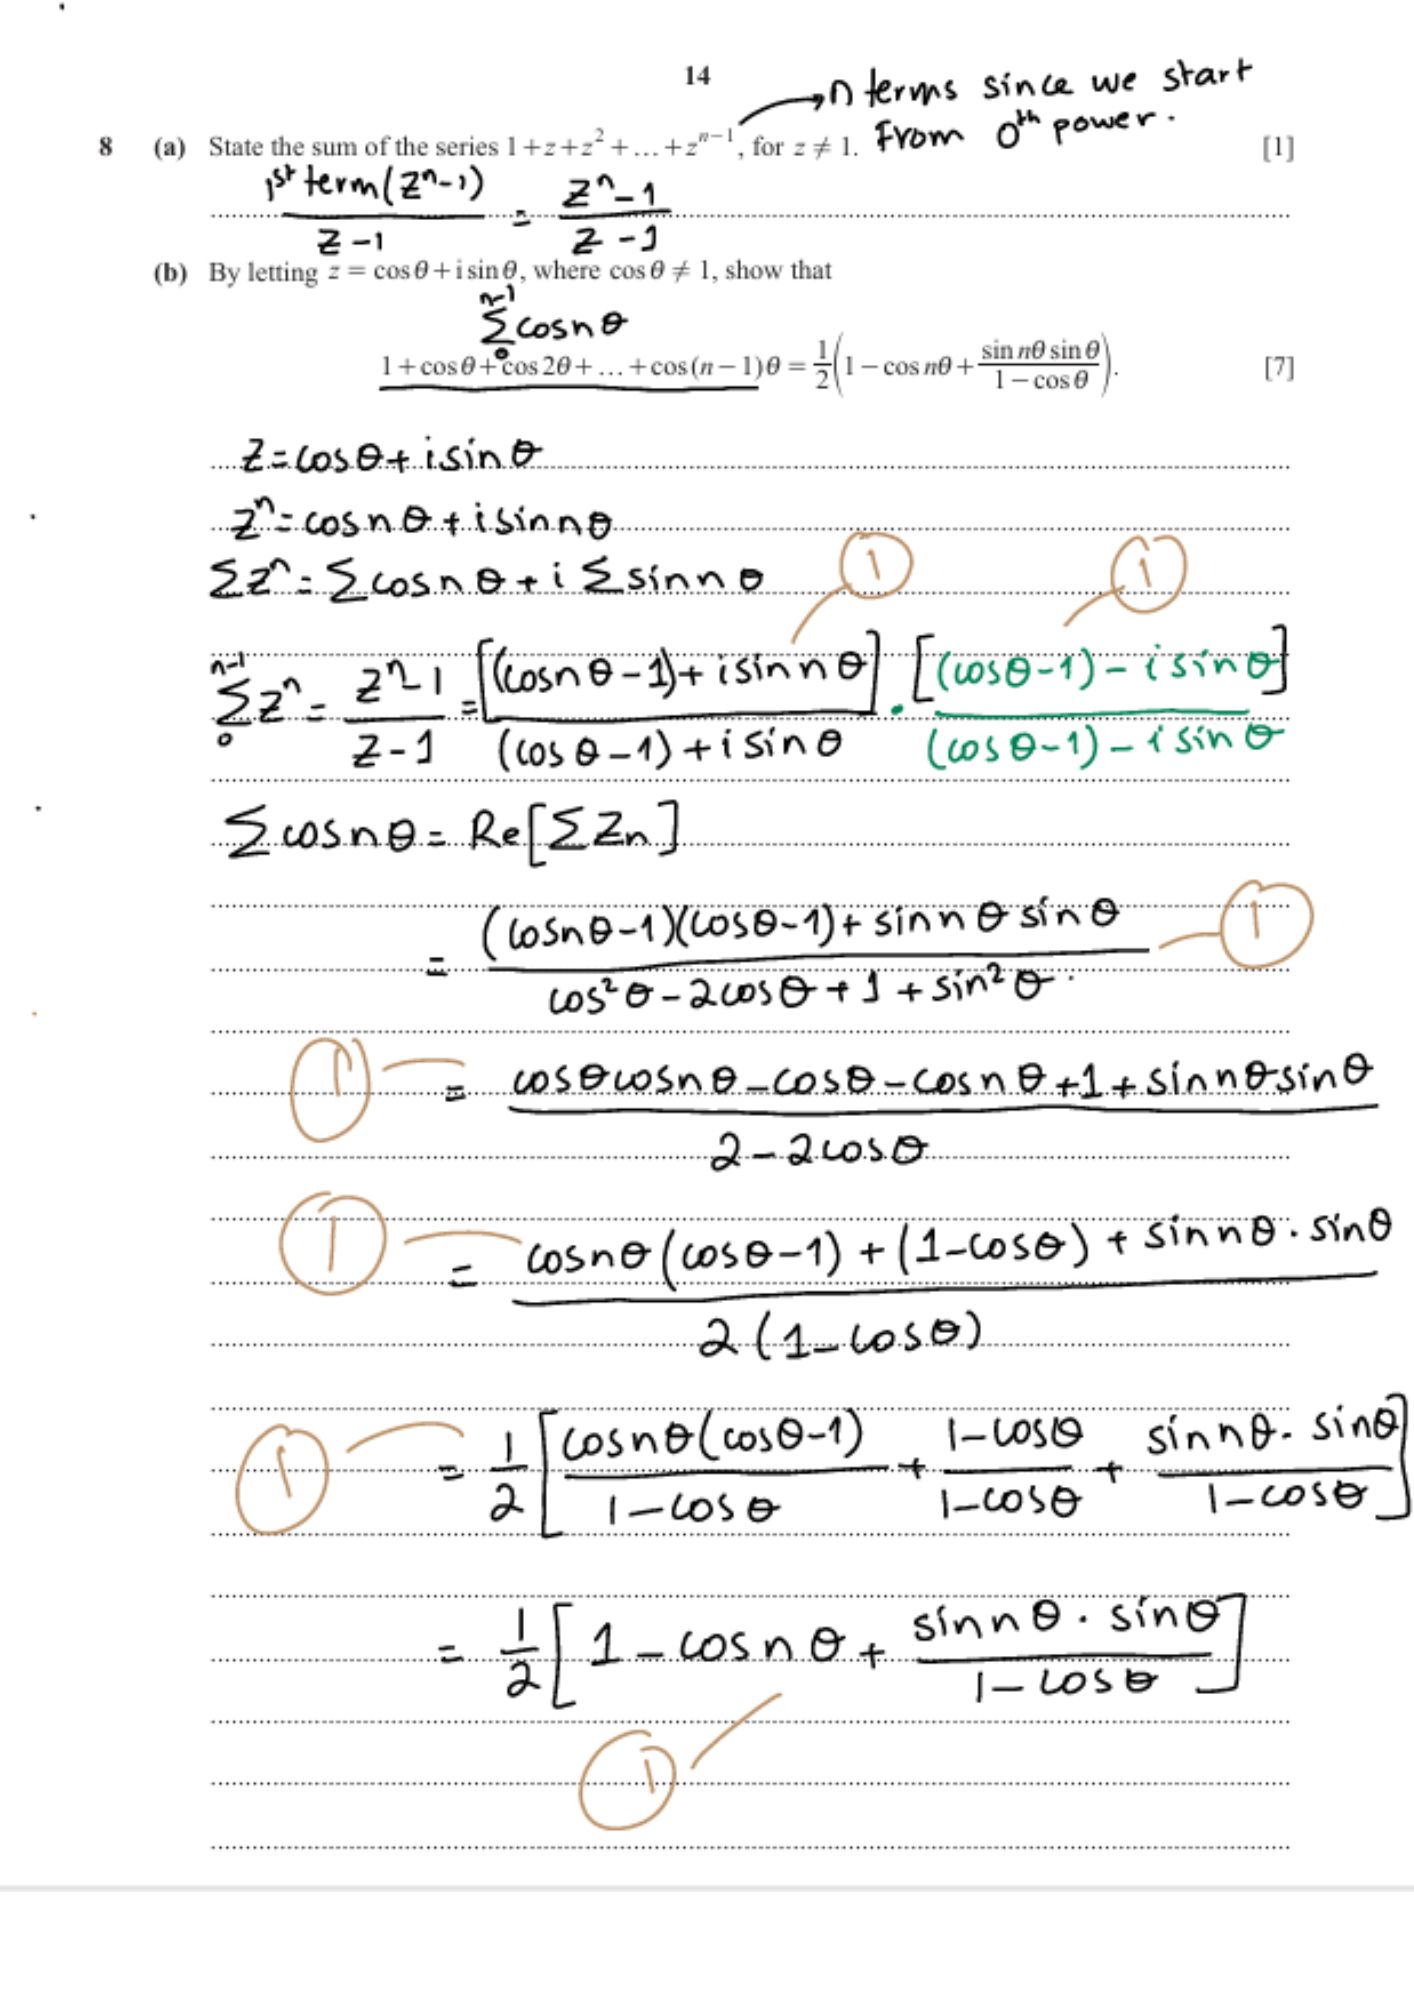 14
n terms since we start
8 (a) State the sum of the series 1 + z + z² + ... + zⁿ⁻¹, for z ≠ 1. From 0th power. [1]
1st term(zⁿ-1) / z-1 = zⁿ-1 / z-1
(b) By letting z = cos θ + i sin θ, where cos θ ≠ 1, show that
n-1 Σ 0 cosnθ
1 + cos θ + cos 2θ + ... + cos(n − 1)θ = 1/2 (1 − cos nθ + sin nθ sin θ / 1 − cos θ). [7]
z = cosθ + isinθ
zⁿ = cosnθ + isinnθ
Σzⁿ = Σcosnθ + i Σsinnθ
1 1
n-1 Σ 0 zⁿ = zⁿ-1 / z-1 = [(cosnθ-1) + isinnθ] / (cosθ-1) + isinθ . [(cosθ-1) - isinθ] / (cosθ-1) - isinθ
Σcosnθ = Re[Σzn]
= (cosnθ-1)(cosθ-1) + sinnθsinθ / cos²θ - 2cosθ + 1 + sin²θ 1
1 = cosθcosnθ - cosθ - cosnθ + 1 + sinnθsinθ / 2 - 2cosθ
1 = cosnθ(cosθ-1) + (1-cosθ) + sinnθ.sinθ / 2(1-cosθ)
1 = 1/2 [cosnθ(cosθ-1) / 1-cosθ + 1-cosθ / 1-cosθ + sinnθ.sinθ / 1-cosθ]
= 1/2 [1 - cosnθ + sinnθ.sinθ / 1-cosθ]
1